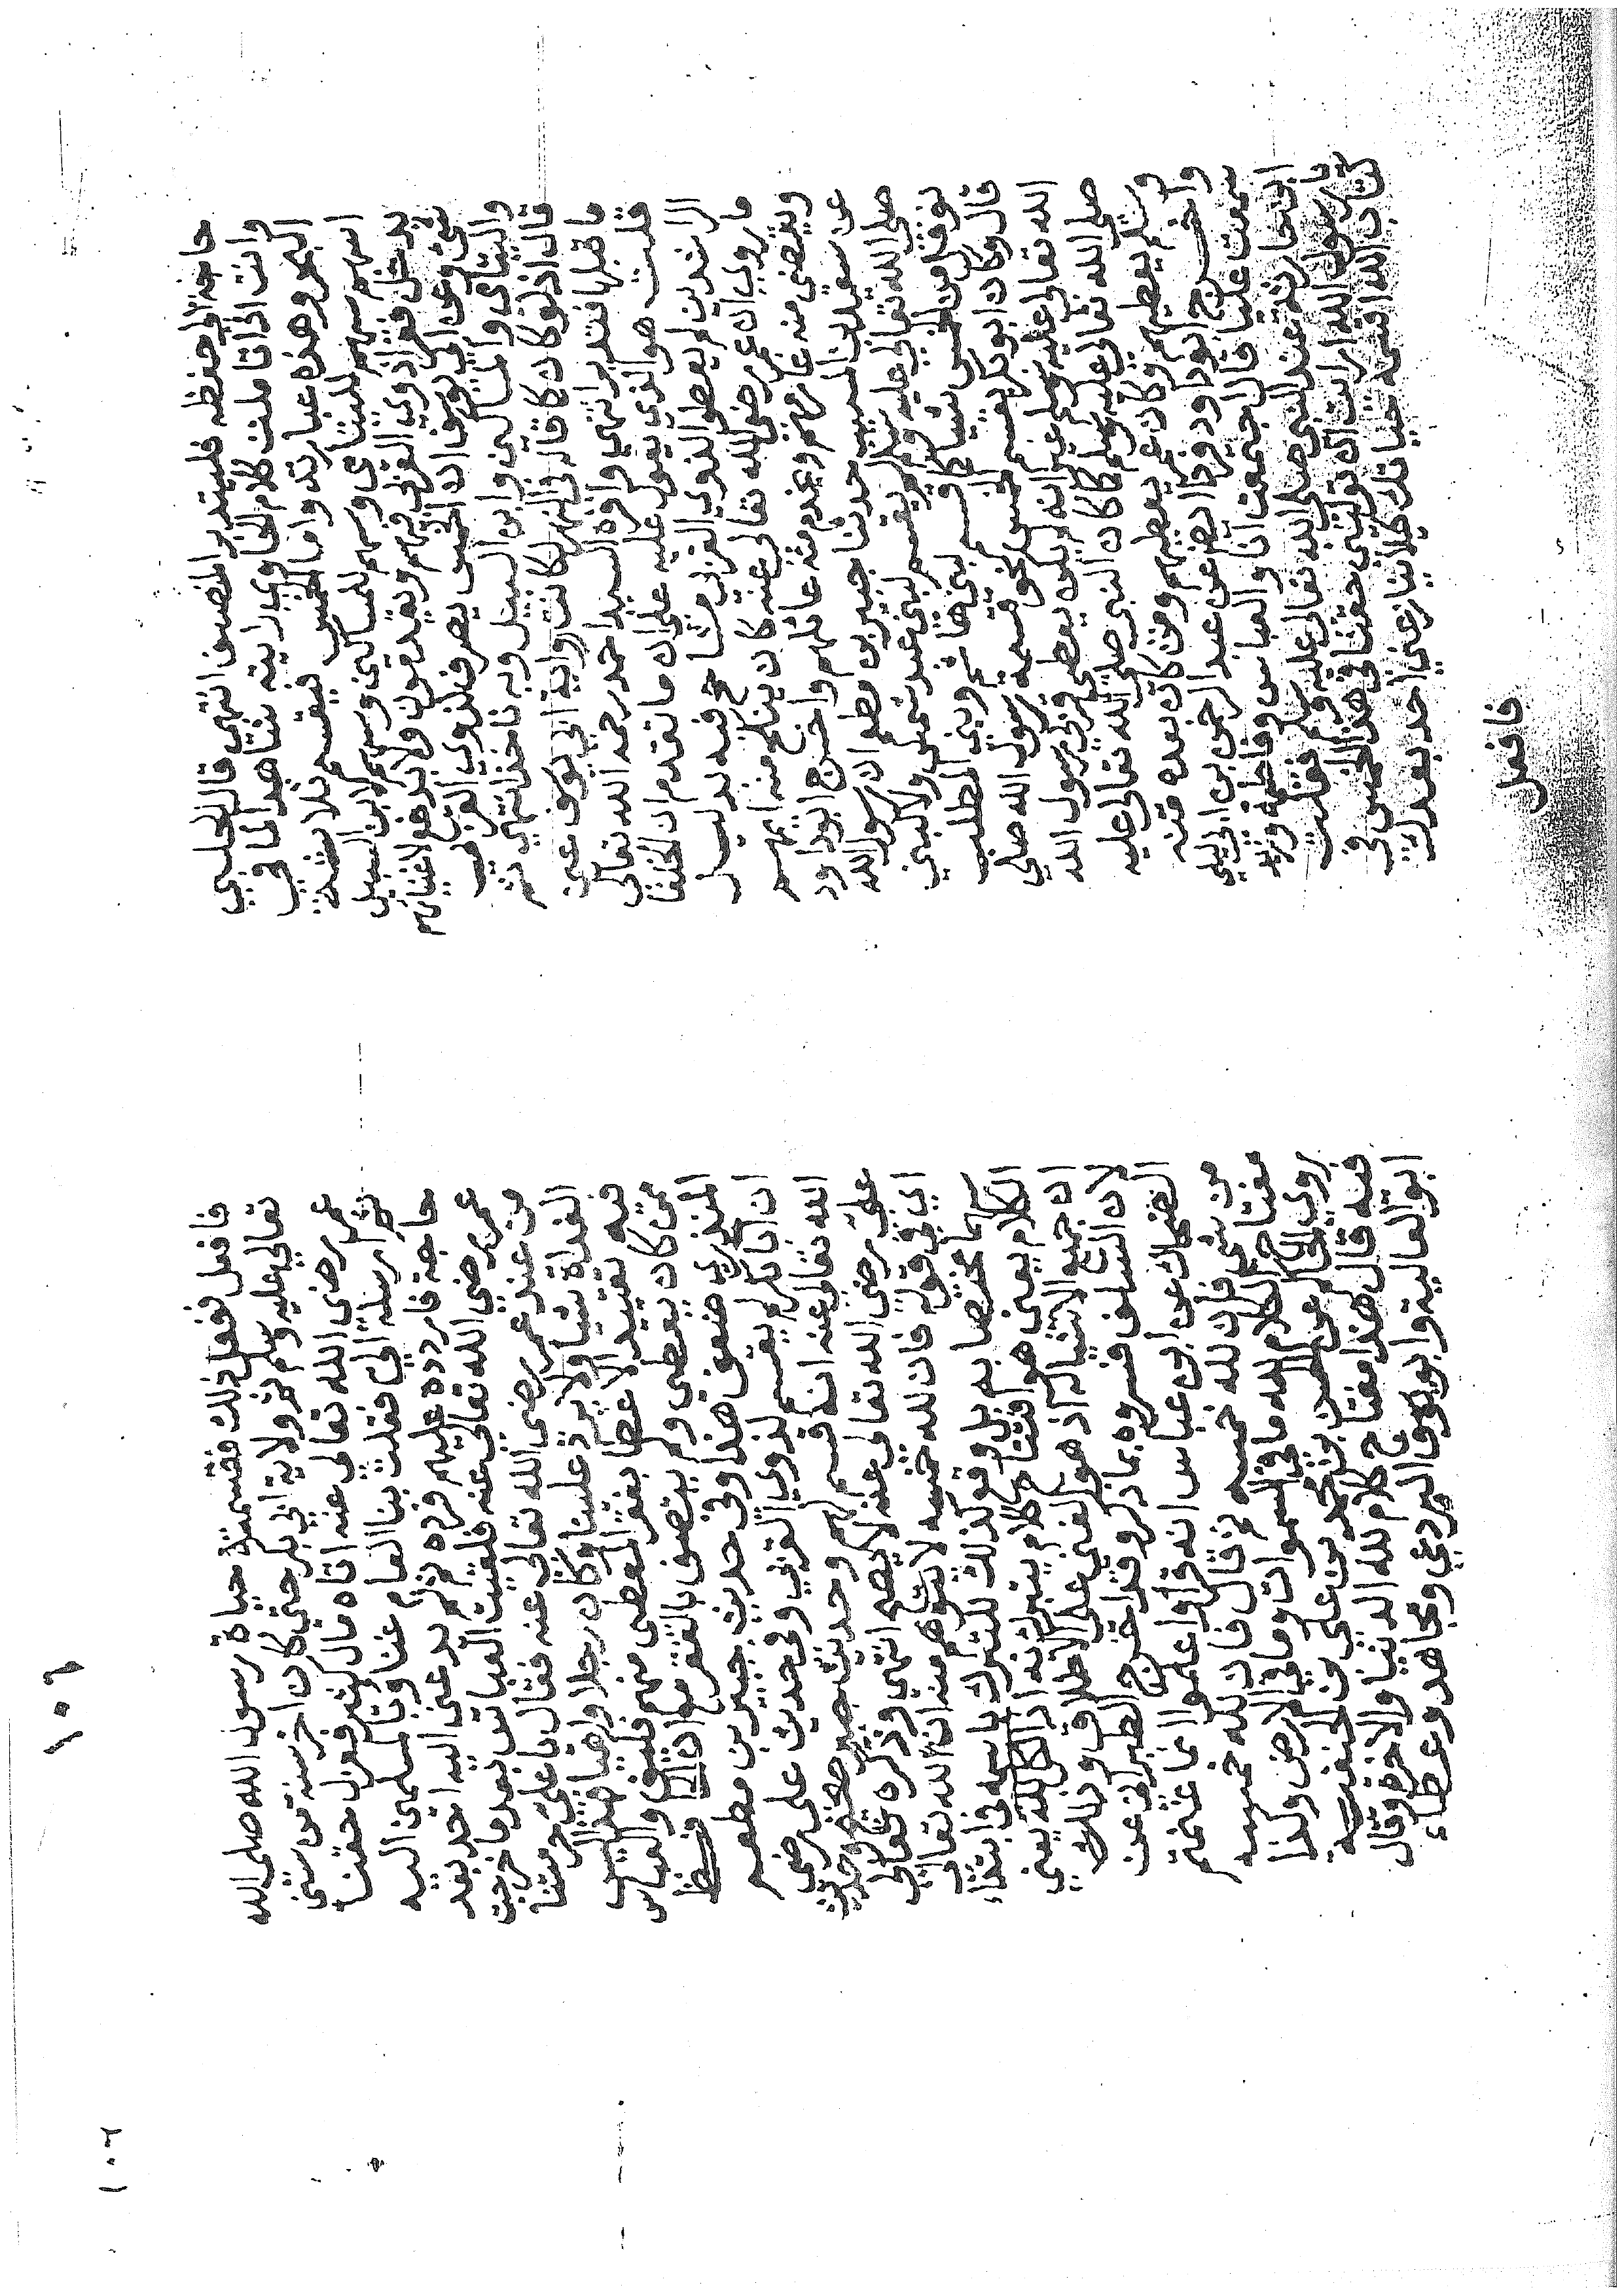 حاجة الى حفظه فليتدبر المنصف انتهى قال الحلبي
وانت اذا تاملت كلام الحاوي رايته شاهدا لما في
البحر وهذه عبارته واما الخمس فيقسم ثلاثة
اسهم سهم لليتامى وسهم للمساكين وسهم لابن السبيل
يدخل فقرا ذوي القربى فيهم ويقدمون ولا يدفع لاغنيائهم
شئ وعن ابي يوسف ان الخمس يصرف لذوي القربى
واليتامى والمساكين وابن السبيل وبه ناخذ انتهى ثم
قال اذ لو كان كما قال في النهر لكانت رواية ابي يوسف عين
ما قبلها فتدبر انتهى واقره السيد احمد رحمه الله تعالى
قلت هو الذي يعول عليه على ان ما تقدم ان الخلفا
الراشدين لم يعطوا لذوي القربى فيه بدليل
ما روي ان عمر رضي الله تعالى عنه كان ينكح منه ايمهم
ويقضي منه غارمهم ويخدم منه عائلهم واخرج ابو داود
عن سعيد بن المسيب حدثنا جبير بن مطعم ان رسول الله
صلى الله تعالى عليه وسلم لم يقسم لبني عبد شمس ولا لبني
نوفل من الخمس شيا كما قسم لبني هاشم وبني المطلب
قال وكان ابو بكر يقسم الخمس نحو قسمة رسول الله صلى
الله تعالى عليه وسلم غير انه لم يكن يعطي قربى رسول الله
صلى الله تعالى عليه وسلم كما كان النبي صلى الله تعالى عليه
وسلم يعطيهم وكان عمر يعطيهم ومن كان بعده منه
واخرج ابو داود ايضا عن عبد الرحمن بن ابي ليلى
سمعت عليا قال اجتمعت انا والعباس وفاطمة وزيد
ابن حارثة عند النبي صلى الله تعالى عليه وسلم فقلت
يا رسول الله ان رايت ان توليني حقنا في هذا الخمس في
كتاب الله اقسمه حياتك كيلا ينازعني احد بعدك
فافعل
١٠٦
فافعل ففعل ذلك فقسمته حياة رسول الله صلى الله
تعالى عليه وسلم ثم ولاية ابي بكر حتى كان اخر سنة من سني
عمر رضي الله تعالى عنه اتاه مال كثير فعزل حقنا
ثم ارسله الي فقلت بنا العام غنا وبالمسلمين اليه
حاجة فاردده عليهم فرده ثم لم يدعني اليه احد بعد
عمر رضي الله تعالى عنه فلقيت العباس بعد ما خرجت
من عند عمر رضي الله تعالى عنه فقال يا علي حرمتنا
الغداة شيا لا يرد علينا وكان رجلا داهيا
فيه تقييد الاعطا بفقر المعطى منهم فليس والعباس
ممن كان يعطي ولم يتصف بالفقر مع ان الحافظ
المنذري ضعف هذا وفي حديث جبير بن مطعم
ان ابا بكر لم يقسم لذوي القربى وفي حديث علي رضي
الله تعالى عنه انه قسم لهم وحديث جبير صحيح وحديث
علي رضي الله تعالى عنه لا يصح انتهى وذكره تعالى
اي في قوله فان لله خمسه للتبرك باسمه في ابتداء
الكلام
ان جميع الاشياله اذ هو الغني على الاطلاق وذلك
لان السلف فسروه بما ذكر وقد اخرج الطبراني عن
الضحاك عن ابن عباس انه قرا واعلموا انما غنمتم
من شئ فان لله خمسه ثم قال فان لله خمسه
مفتاح الكلام لله ما في السموات وما في الارض ولذا
روى الحاكم عن الحسن بن محمد بن علي بن الحنفية
فيه قال هذا مفتاح كلام لله الدنيا والاخرة وقال
ابو العالية
١٠٦